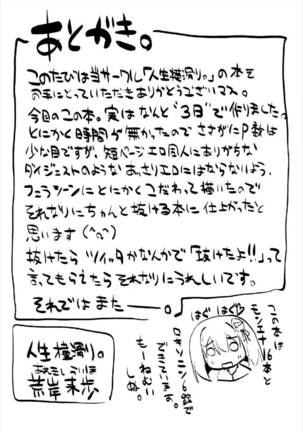 あとがき。
このたびは当サークル「人生横滑り。」の本を
お手にとっていただきありがとうございマス。
今回のこの本。実はなんと"3日"で作りました。
とにかく時間が無かったのでさすがにP数は
少な目ですが、短ページエロ同人にありがちな
ダイジェストのようなあっさりエロにはならないよう、
フェラシーンにとにかくこだわって描いたので
それなりにちゃんと抜ける本に仕上がったと
思います(^o^)
抜けたらツイッタかなんかで「抜けたよ!!」って
言ってもらえたらそれなりにうれしいです。
それではまた――。
人生横滑り。
あれきし らいほ
荒岸来歩
はぐはぐ
この本は
モンエナ16本と
ロキソニン6錠で
できています。
もーねむい
しぬ。